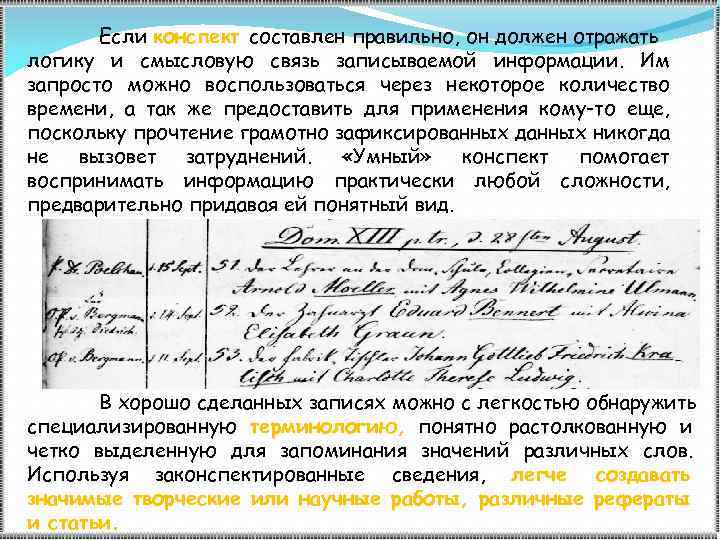 Если конспект составлен правильно, он должен отражать
логику и смысловую связь записываемой информации. Им
запросто можно воспользоваться через некоторое количество
времени, а так же предоставить для применения кому-то еще,
поскольку прочтение грамотно зафиксированных данных никогда
не вызовет затруднений. «Умный» конспект помогает
воспринимать информацию практически любой сложности,
предварительно придавая ей понятный вид.
Dom XIII p. tr., d. 28sten August.
15 Sept. 51. Der Lehrer an der Dom,
Arnold Moeller mit Agnes Wilhelmine Ulmann.
v. Bergmann 14 Sept. 52. Der Zahnarzt Eduard Bennert mit Alwina
Diedrich. Elisabeth Graun.
v. Bergmann. 11 Sept. 53. Der Fabrik, Tischler Johann Gottlieb Friedrich Kra-
mit Charlotte Therese Ludwig.
В хорошо сделанных записях можно с легкостью обнаружить
специализированную терминологию, понятно растолкованную и
четко выделенную для запоминания значений различных слов.
Используя законспектированные сведения, легче создавать
значимые творческие или научные работы, различные рефераты
и статьи.